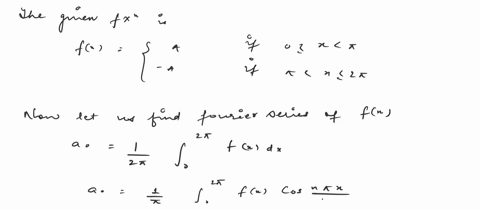 The given fx^n is
f(x) = { A if 0 ≥ x < π
-A if π < x ≤ 2π
Now let us find fourier series of f(x)
a₀ = 1/2π ∫₀^2π f(x) dx
a₀ = 1/π ∫₀^2π f(x) cos nπx/